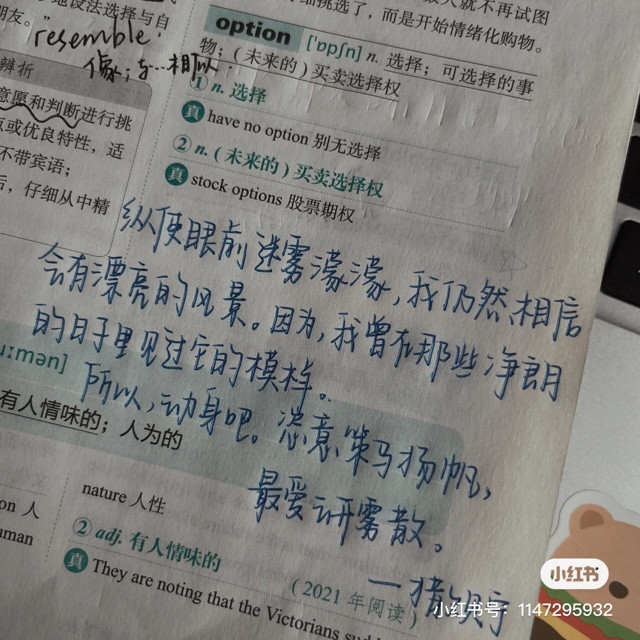 就不再试图
挑选了，而是开始情绪化购物。
地设法选择与自
朋友。"
resemble:
像；与…相似
辨析
意愿和判断进行挑
点或优良特性，适
不带宾语；
后，仔细从中精
option ['ɒpʃn] n. 选择；可选择的事
物；(未来的)买卖选择权
① n. 选择
真 have no option 别无选择
② n. (未来的)买卖选择权
真 stock options 股票期权
纵使眼前迷雾濛濛，我仍然相信
会有漂亮的风景。因为，我曾在那些净朗
的日子里见过它的模样。
所以，动身吧。恣意策马扬帆，
最爱云开雾散。
u:mən]
有人情味的；人为的
on 人
uman
nature 人性
② adj. 有人情味的
(2021 年阅读)
真 They are noting that the Victorians
小红书
小红书号：1147295932